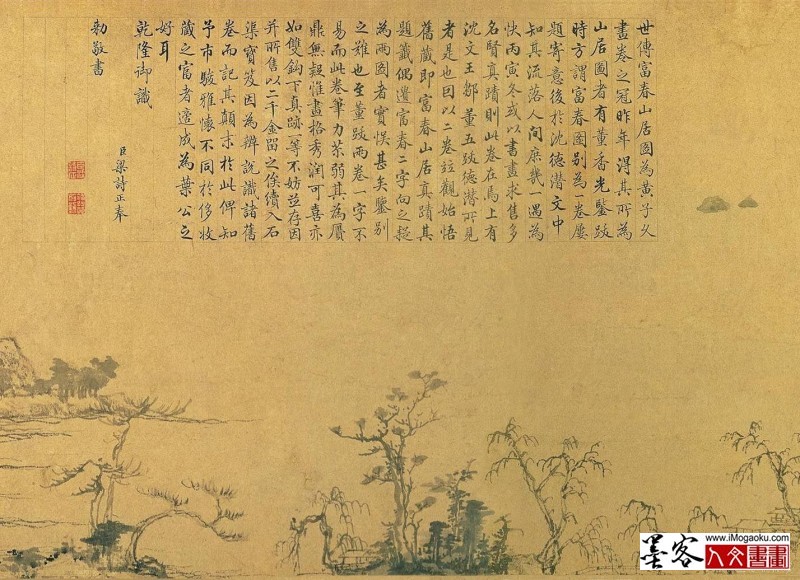 世傳富春山居圖為黃子久
畫卷之冠昨年得其所為
山居圖者有董香光鑒跋
時方謂富春圖別為一卷屢
題寄意後於沈德潛文中
知其流落人間庶幾一遇為
快丙寅冬或以書畫求售多
名賢真蹟則此卷在焉上有
沈文王鄒董五跋德潛所見
者是也因以二卷竝觀始悟
舊藏即富春山居真蹟其
題籤偶遺富春二字向之疑
為兩圖者實悞甚矣鑒別
之難也至董跋兩卷一字不
易而此卷筆力苶弱其為贗
鼎無疑惟畫格秀潤可喜亦
如雙鈎下真跡一等不妨竝存因
并所售以二千金留之俟續入石
渠寶笈因為辨說識諸舊
卷而記其顛末於此俾知
予市駿雅懷不同於侈收
藏之富者適成為葉公之
好耳
乾隆御識
臣梁詩正奉
勅敬書
www.iMogaoku.com
墨客人文書畫